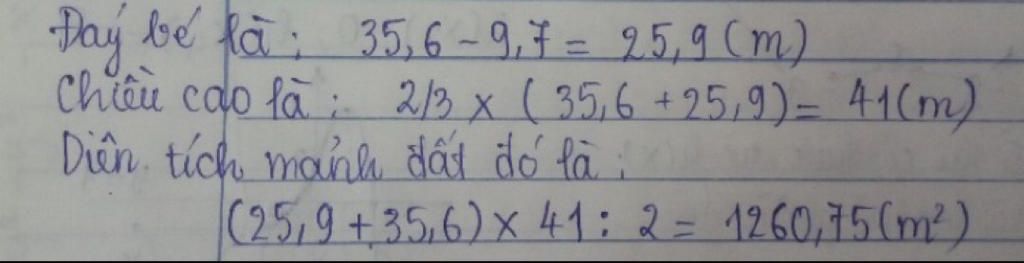 Đáy bé là: 35,6 - 9,7 = 25,9 (m)
Chiều cao là: 2/3 x (35,6 + 25,9) = 41 (m)
Diện tích mảnh đất đó là:
(25,9 + 35,6) x 41 : 2 = 1260,75 (m²)